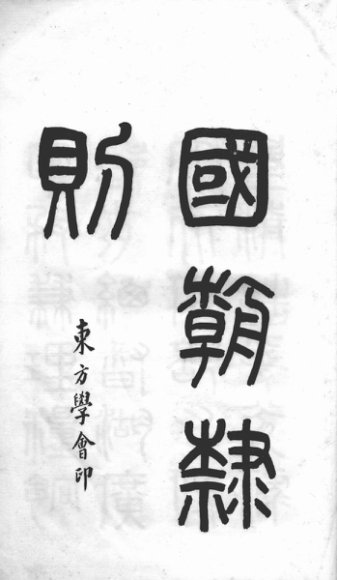 國朝隸
則
東方學會印